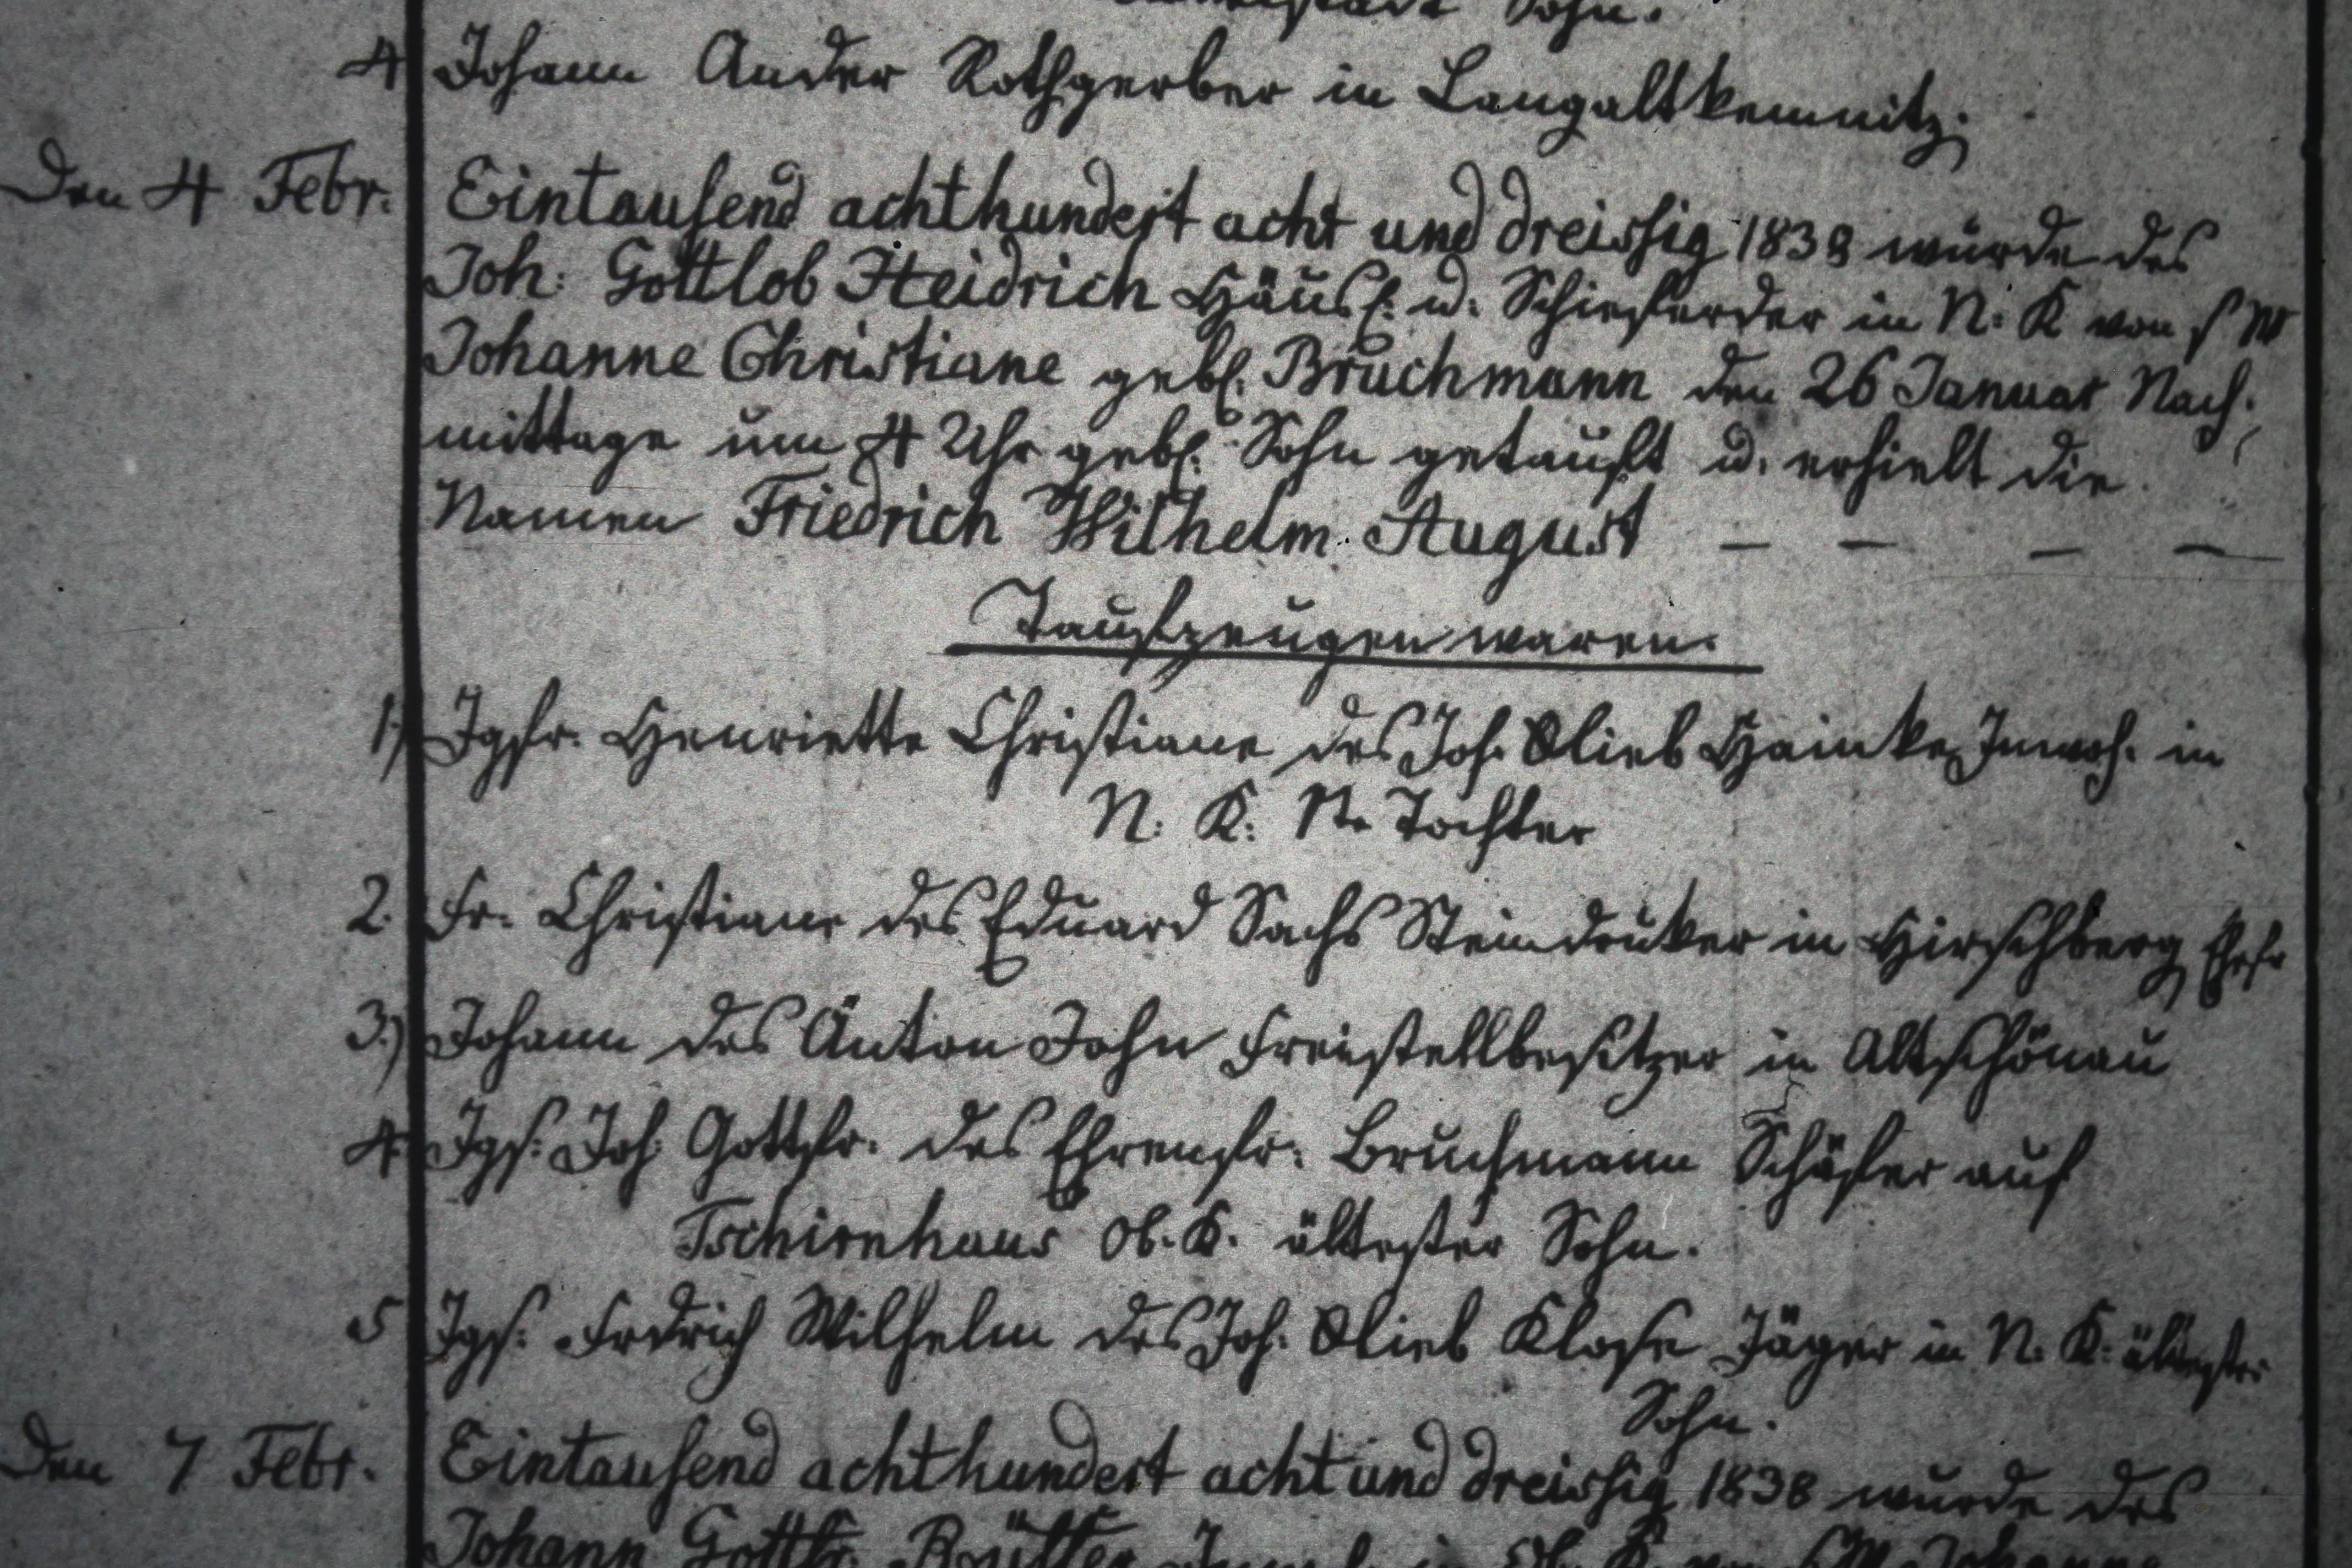 Sohn.
4 Johann Ander Rothgerber in Langaltkemnitz.
Den 4 Febr. Eintausend achthundert acht und dreissig 1838 wurde des
Joh: Gottlob Heidrich Häusl. u. Schneider in N: K von s W
Johanne Christiane gebl. Bruchmann den 26 Januar Nach:
mittage um 4 Uhr gebl. Sohn getauft u. erhielt die
Namen Friedrich Wilhelm August — — — —
Taufzeugen waren.
1) Jgfr. Henriette Christiane des Joh. Glieb Hainke Inwoh. in
N: K: Tochter
2. Fr. Christiane des Eduard Sachs Steindruker in Hirschberg Ehefr
3.) Johann des Anton John Freistellbesitzer in Altschönau
4. Jgs: Joh: Gottfr. des Ehrenfr: Bruchmann Schäfer auf
Tschirnhaus Ob. K. ältester Sohn.
5 Jgs: Frdrich Wilhelm des Joh. Glieb Klose Jäger in N. K: ältester
Sohn.
Den 7 Febr. Eintausend achthundert acht und dreissig 1838 wurde des
Johann Gottfr.